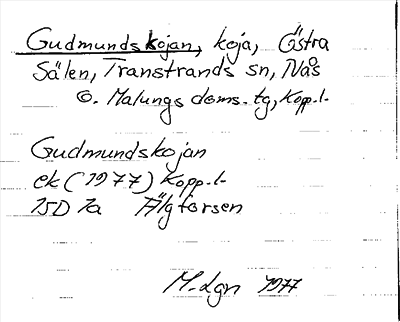 Gudmundskojan, koja, Östra
Sälen, Transtrands sn, Nås
o. Malungs doms. tg, Kopp.l.
Gudmundskojan
ek (1977) Kopp.l.
15D 7a Älgforsen
M. Lgn 1977